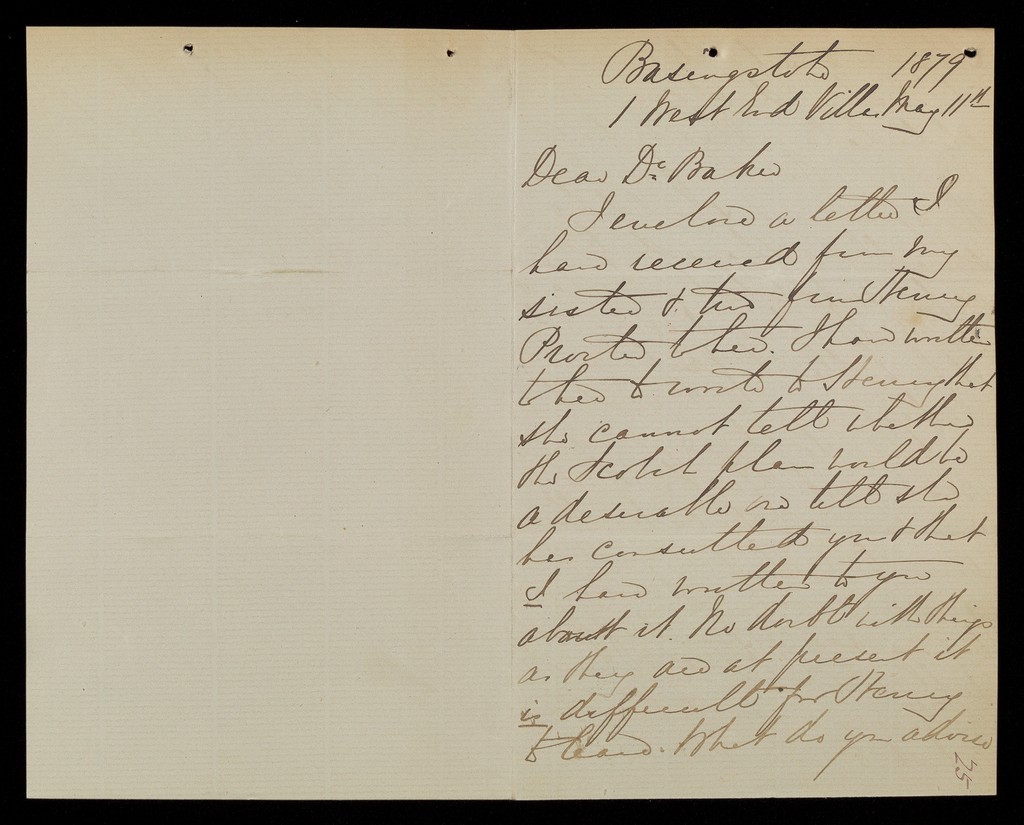 Basingstoke 1879
1 West End Villa May 11th
Dear Dr Baker
I enclose a letter I
have received from my
sister & two from Henry
Procter to her. I have written
to her to write to Henry that
she cannot tell whether
the Scotch plan would be
a desirable one till she
has consulted you & that
I have written to you
about it. No doubt with things
as they are at present it
is difficult for Henry
to leave. What do you advise
25